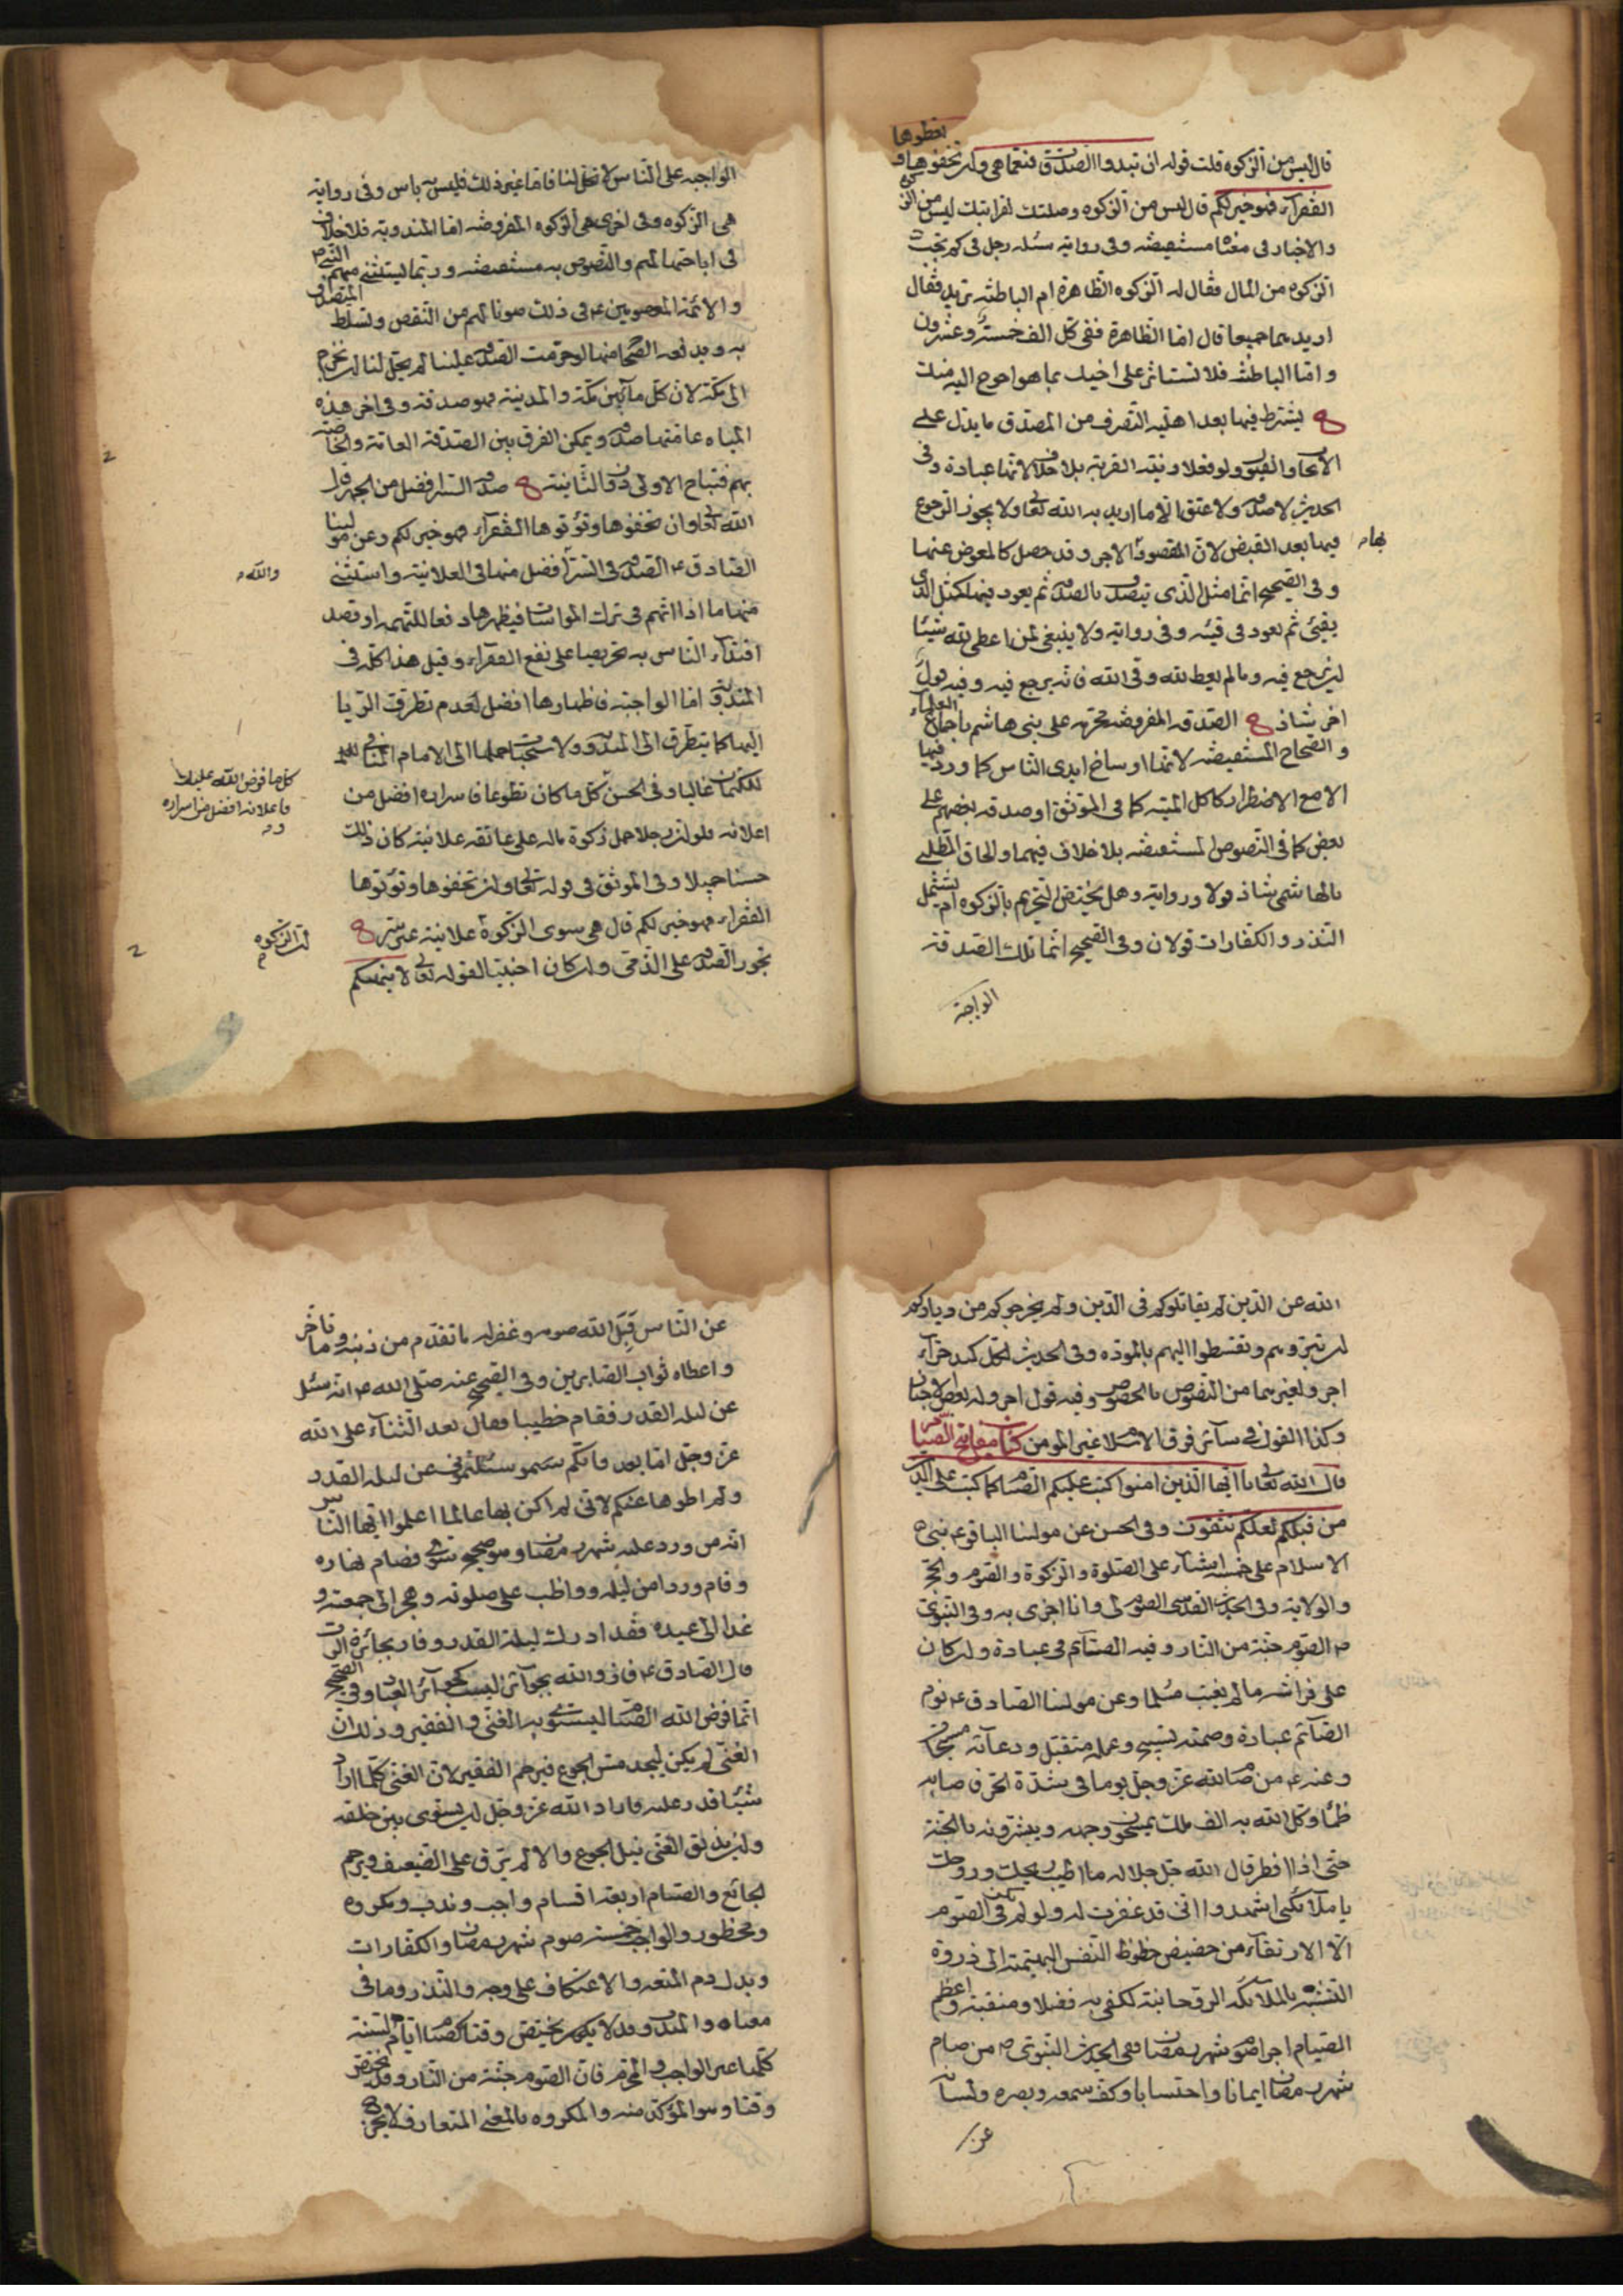 قال ليس من الزكوه قلت قوله ان تبدوا الصدقات فنعما هي وان تخفوها و
تعطوها
الفقراء فهو خير لكم قال ليس من الزكوه وصلتك قرابتك ليس من الزكوه
والاخبار في معناه مستفيضه وفي روايه سئله رجل في كم تجب
الزكوه من المال فقال له الزكوه الظاهرة ام الباطنه تريد فقال
اريدهما جميعا قال اما الظاهرة ففي كل الف خمسة وعشرون
واما الباطنه فلا تستاثر على اخيك بما هو احوج اليه منك
يشترط فيها بعد اهليه التصرف من المصدق ما يدل على
الايجاب والقبول ولو فعلا ونيه القربة بلا خلاف لانها عبادة وفي
الحديث لا صدقه ولا عتق الا ما اريد به الله تعالى ولا يجوز الرجوع
فيها بعد القبض لان المقصود الاجر وقد حصل كالمعوض عنها
بها
وفي الصحيح انما مثل الذي يتصدق بالصدقه ثم يعود فيها كمثل الذي
يقيئ ثم يعود في قيئه وفي روايه ولا ينبغي لمن اعطى لله شيئا
ان يرجع فيه وما لم يعط لله وفي الله فانه يرجع فيه وفيه قول
اخر شاذ الصدقه المفروضه محرمه على بني هاشم باجماع العلماء
والصحاح المستفيضه لانها اوساخ ايدى الناس كما ورد فيها
الا مع الاضطرار كاكل الميته كما في الموثق او صدقه بعضهم على
بعض كما في النصوص المستفيضه بلا خلاف فيهما والحاق المطلبي
بالهاشمي شاذ قولا وروايه وهل يختص التحريم بالزكوه ام يشمل
النذر والكفارات قولان وفي الصحيح انما تلك الصدقة
الواجبة
الواجبه على الناس لا تحل لنا فاما غير ذلك فليس به باس وفي روايه
هي الزكوه وفي اخرى هي الزكوه المفروضه اما المندوبه فلا خلاف
في اباحتها لهم والنصوص به مستفيضه وربما يستثني منهم النبي ص
والائمة المعصومين ع في ذلك صونا لهم من النقص وتسلط المتصدق
به ويدفعه الصحاح منها لو حرمت الصدقه علينا لم يحل لنا ان نخرج
الى مكة لان كل ما بين مكة والمدينه فهو صدقه وفي اخر هذه
المياه عامتها صدقه ويمكن الفرق بين الصدقة العامة والخاصة
بهم فتباح الاولى دون الثانية صدقه السر افضل من الجهر قال
الله تعالى وان تخفوها وتؤتوها الفقراء فهو خير لكم وعن مولينا
الصادق ع الصدقه في السر افضل منها في العلانية واستثني
والله
منها ما اذا اتهم في ترك المواساة فيظهرها دفعا للتهمه او قصد
اقتداء الناس به تحريصا على نفع الفقراء وقيل هذا كله في
المندوبة اما الواجبة فاظهارها افضل لعدم تطرق الريا
اليها كما يتطرق الى المندوبه ولاستحباب حملها الى الامام المنافي
للكتمان غالبا وفي الحسن كل ما كان تطوعا فاسراره افضل من
كل ما فرض الله عليك
فاعلانه افضل من اسراره
و
اعلانه فلو ان رجلا حمل زكوة ماله على عاتقه علانية كان ذلك
حسنا جميلا وفي الموثق في قوله تعالى وان تخفوها وتؤتوها
الفقراء فهو خير لكم قال هي سوى الزكوة علانية غير سر
ان الزكوه
تجوز الصدقه على الذمي وان كان اجنبيا لقوله تعالى لا ينهيكم
الله عن الذين لم يقاتلوكم في الدين ولم يخرجوكم من دياركم
ان تبروهم وتقسطوا اليهم بالموده وفي الحديث لكل كبد حراء
اجر ولغيرهما من النصوص بالخصوص وفيه قول اخر وله
وكذا القول في سائر فرق الاسلام غير المومن كتاب مفاتيح الصيام
قال الله تعالى يا ايها الذين امنوا كتب عليكم الصيام كما كتب على الذين
من قبلكم لعلكم تتقون وفي الحسن عن مولينا الباقر ع بني
الاسلام على خمسة اشياء على الصلوة والزكوة والصوم والحج
والولاية وفي الحديث القدسي الصوم لي وانا اجزى به وفي النبوى
ص الصوم جنة من النار وفيه الصائم في عبادة وان كان
على فراشه ما لم يغتب مسلما وعن مولينا الصادق ع نوم
الصائم عبادة وصمته تسبيح وعمله متقبل ودعائه مستجاب
وعنه ع من صام لله عز وجل يوما في شدة الحر فاصابه
ظما وكل الله به الف ملك يمسحون وجهه ويبشرونه بالجنة
حتى اذا افطر قال الله جل جلاله ما اطيب ريحك وروحك
يا ملائكتي اشهدوا اني قد غفرت له ولو لم يكن في الصوم
الا الارتقاء من حضيض حظوظ النفس البهيمية الى ذروة
التشبه بالملائكه الروحانية لكفى به فضلا ومنقبة واعظم
الصيام اجرا صوم شهر رمضان ففي الحديث النبوى ص من صام
شهر رمضان ايمانا واحتسابا وكف سمعه وبصره ولسانه
عن
عن الناس قبل الله صومه وغفر له ما تقدم من ذنبه وما تاخر
واعطاه ثواب الصابرين وفي الصحيح عنه صلى الله ع انه سئل
عن ليله القدر فقام خطيبا فقال بعد الثناء على الله
عز وجل اما بعد فانكم سئلتموني عن ليله القدر
ولم اطوها عنكم لاني لم اكن بها عالما اعلموا ايها الناس
انه من ورد عليه شهر رمضان وهو صحيح سوى فصام نهاره
وقام وردا من ليله وواظب على صلوته وهجر الى جمعته و
غدا الى عيده فقد ادرك ليلة القدر وفاز بجائزة الرب
قال الصادق ع فاز والله بجوائز ليست كجوائز العباد وفي الصحيح
انما فرض الله الصيام ليستوى به الغني والفقير وذلك ان
الغني لم يكن ليجد مس الجوع فيرحم الفقير لان الغني كلما اراد
شيئا قدر عليه فاراد الله عز وجل ان يسوى بين خلقه
وان يذيق الغني نيل الجوع والالم ليرق على الضعيف ويرحم
الجائع والصيام اربعة اقسام واجب وندب ومكروه
ومحظور والواجب خمسة صوم شهر رمضان والكفارات
وبدل دم المتعه والاعتكاف على وجه والنذر وما في
معناه والمندوب قد لا يختص وقتا كصيام ايام السنة
كلها غير الواجب والمحرم فان الصوم جنة من النار وقد يختص
وقتا وهو المؤكد منه والمكروه بالمعنى المتعارف لا يجرى